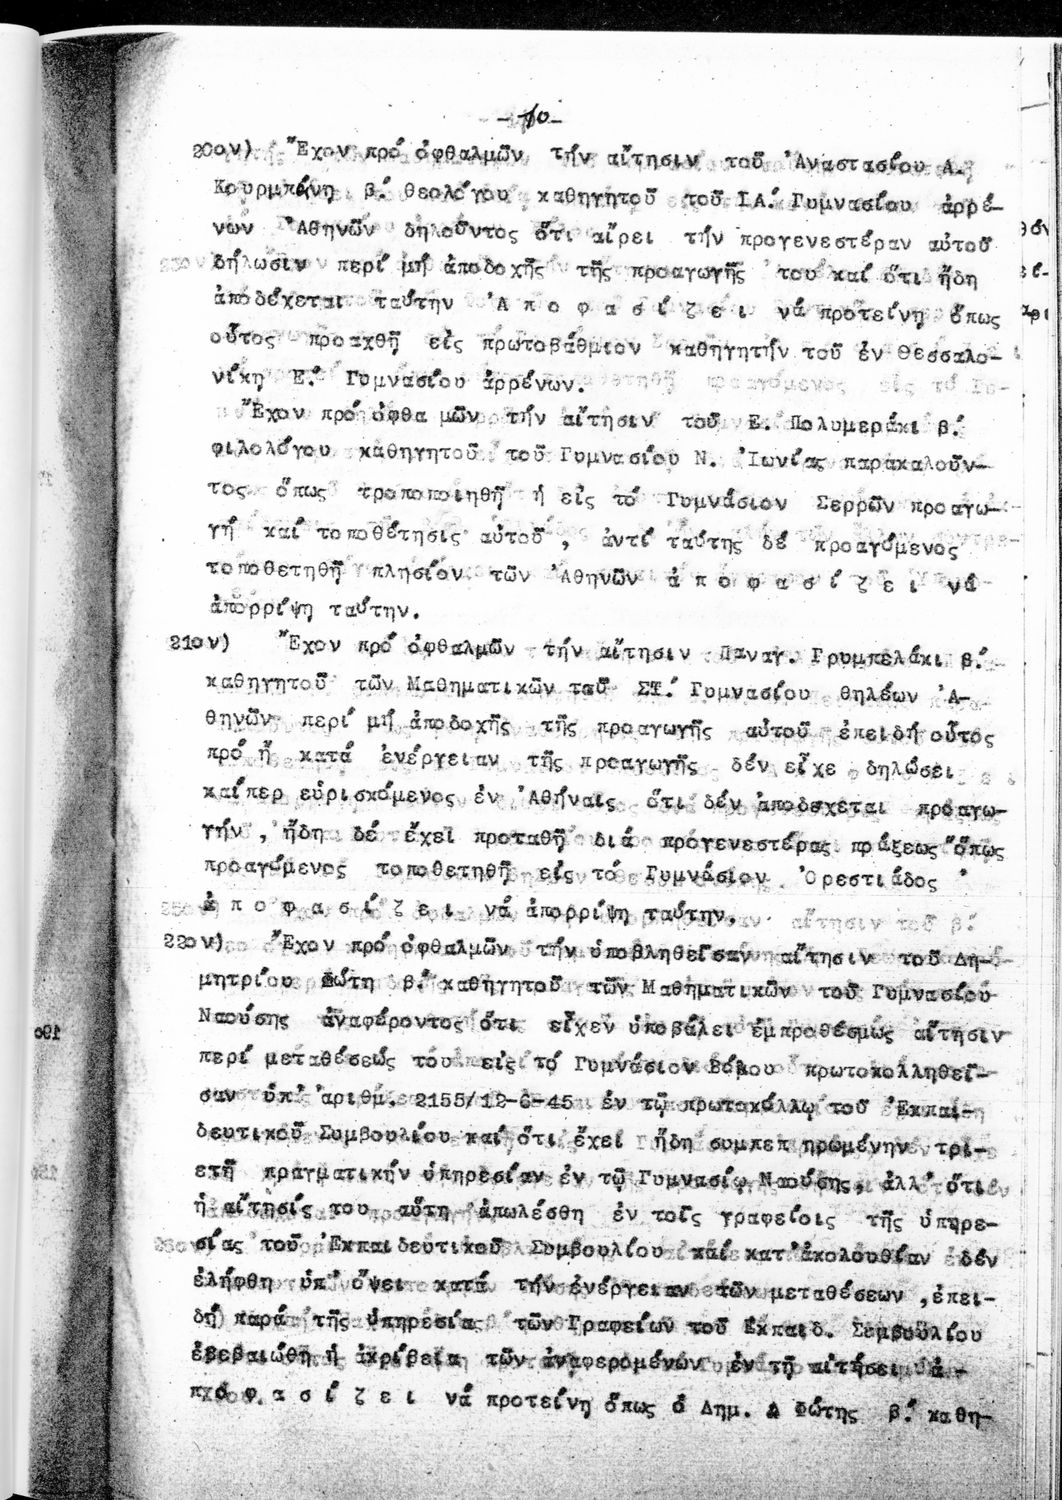 -10-
20ον) Ἔχον πρό ὀφθαλμῶν τήν αἴτησιν τοῦ Ἀναστασίου Α.
Κουρμπάνη β.΄ θεολόγου καθηγητοῦ τοῦ ΙΑ.΄ Γυμνασίου ἀρρέ-
νων Ἀθηνῶν δηλοῦντος ὅτι αἴρει τήν προγενεστέραν αὐτοῦ
δήλωσιν περί μή ἀποδοχῆς τῆς προαγωγῆς του καί ὅτι ἤδη
ἀποδέχεται ταύτην Ἀ π ο φ α σ ί ζ ε ι νά προτείνη ὅπως
οὗτος προαχθῇ εἰς πρωτοβάθμιον καθηγητήν τοῦ ἐν Θεσσαλο-
νίκη Ε.΄ Γυμνασίου ἀρρένων.
Ἔχον πρό ὀφθα μῶν τήν αἴτησιν τοῦ Ε. Πολυμεράκι β.΄
φιλολόγου καθηγητοῦ τοῦ Γυμνασίου Ν. Ἰωνίας παρακαλοῦν-
τος ὅπως τροποποιηθῇ ἡ εἰς τό Γυμνάσιον Σερρῶν προαγω-
γή καί τοποθέτησις αὐτοῦ, ἀντί ταύτης δέ προαγόμενος
τοποθετηθῇ πλησίον τῶν Ἀθηνῶν ἀ π ο φ α σ ί ζ ε ι νά
ἀπορρίψη ταύτην.
21ον) Ἔχον πρό ὀφθαλμῶν τήν αἴτησιν Παναγ. Γρυμπελάκι β.΄
καθηγητοῦ τῶν Μαθηματικῶν τοῦ ΣΤ.΄ Γυμνασίου θηλέων Ἀ-
θηνῶν περί μή ἀποδοχῆς τῆς προαγωγῆς αὐτοῦ ἐπειδή οὗτος
πρό ἤ κατά ἐνέργειαν τῆς προαγωγῆς δέν εἶχε δηλώσει
καίπερ εὑρισκόμενος ἐν Ἀθήναις ὅτι δέν ἀποδεχεται προαγω-
γήν, ἤδη δέ ἔχει προταθῆ διά προγενεστέρας πράξεως ὅπως
προαγόμενος τοποθετηθῇ εἰς τό Γυμνάσιον Ὀρεστιάδος
ἀ π ο φ α σ ί ζ ε ι νά ἀπορρίψη ταύτην.
22ον) Ἔχον πρό ὀφθαλμῶν τήν ὑποβληθεῖσαν αἴτησιν τοῦ Δη-
μητρίου Φώτη β.΄ καθηγητοῦ τῶν Μαθηματικῶν τοῦ Γυμνασίου
Ναούσης ἀναφέροντος ὅτι εἶχεν ὑποβάλει ἐμπροθέσμως αἴτησιν
περί μεταθέσεώς του εἰς τό Γυμνάσιον Βόλου πρωτοκολληθεῖ-
σαν ὑπ' ἀριθμ. 2155/12-6-45 ἐν τῷ πρωτοκόλλῳ τοῦ Ἐκπαι-
δευτικοῦ Συμβουλίου καί ὅτι ἔχει ἤδη συμπεπ ηρωμένην τρι-
ετῆ πραγματικήν ὑπηρεσίαν ἐν τῷ Γυμνασίῳ Ναούσης, ἀλλ' ὅτι
ἡ αἴτησίς του αὕτη ἀπωλέσθη ἐν τοῖς γραφείοις τῆς ὑπηρε-
σίας τοῦ Ἐκπαιδευτικοῦ Συμβουλίου καί κατ' ἀκολουθίαν δέν
ἐλήφθη ὑπ' ὄψει κατά τήν ἐνέργειαν τῶν μεταθέσεων, ἐπει-
δή παρά τῆς ὑπηρεσίας τῶν Γραφείων τοῦ Ἐκπαιδ. Συμβουλίου
ἐβεβαιώθη ἡ ἀκρίβεια τῶν ἀναφερομένων ἐν τῇ αἰτήσει ἀ -
π ο φ α σ ί ζ ε ι νά προτείνη ὅπως ὁ Δημ. Φώτης β.΄ καθη-